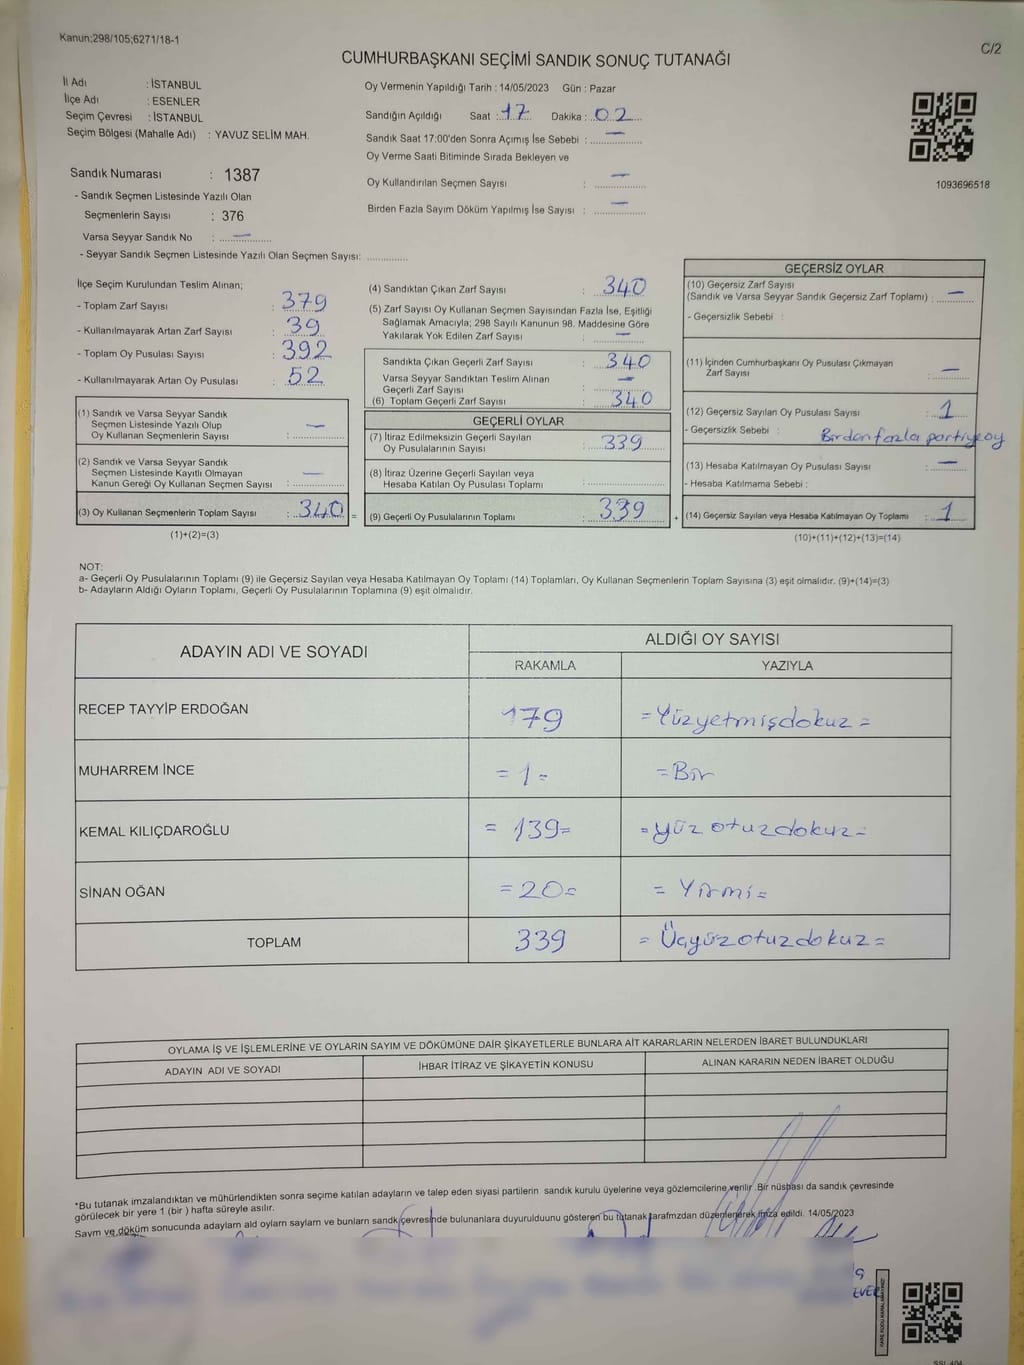 Kanun;298/105;6271/18-1
C/2
CUMHURBAŞKANI SEÇİMİ SANDIK SONUÇ TUTANAĞI
İl Adı : İSTANBUL
İlçe Adı : ESENLER
Seçim Çevresi : İSTANBUL
Seçim Bölgesi (Mahalle Adı) : YAVUZ SELİM MAH.
Oy Vermenin Yapıldığı Tarih : 14/05/2023 Gün : Pazar
Sandığın Açıldığı Saat : 17 Dakika : 02
Sandık Saat 17:00'den Sonra Açımış İse Sebebi : —
Oy Verme Saati Bitiminde Sırada Bekleyen ve
Oy Kullandırılan Seçmen Sayısı : —
Birden Fazla Sayım Döküm Yapılmış İse Sayısı : —
1093696518
Sandık Numarası : 1387
- Sandık Seçmen Listesinde Yazılı Olan
Seçmenlerin Sayısı : 376
Varsa Seyyar Sandık No : —
- Seyyar Sandık Seçmen Listesinde Yazılı Olan Seçmen Sayısı:
İlçe Seçim Kurulundan Teslim Alınan;
- Toplam Zarf Sayısı : 379
- Kullanılmayarak Artan Zarf Sayısı : 39
- Toplam Oy Pusulası Sayısı : 392
- Kullanılmayarak Artan Oy Pusulası : 52
(1) Sandık ve Varsa Seyyar Sandık
Seçmen Listesinde Yazılı Olup
Oy Kullanan Seçmenlerin Sayısı : —
(2) Sandık ve Varsa Seyyar Sandık
Seçmen Listesinde Kayıtlı Olmayan
Kanun Gereği Oy Kullanan Seçmen Sayısı : —
(3) Oy Kullanan Seçmenlerin Toplam Sayısı : 340 =
(1)+(2)=(3)
(4) Sandıktan Çıkan Zarf Sayısı : 340
(5) Zarf Sayısı Oy Kullanan Seçmen Sayısından Fazla İse, Eşitliği
Sağlamak Amacıyla; 298 Sayılı Kanunun 98. Maddesine Göre
Yakılarak Yok Edilen Zarf Sayısı : —
Sandıkta Çıkan Geçerli Zarf Sayısı : 340
Varsa Seyyar Sandıktan Teslim Alınan
Geçerli Zarf Sayısı : —
(6) Toplam Geçerli Zarf Sayısı : 340
GEÇERLİ OYLAR
(7) İtiraz Edilmeksizin Geçerli Sayılan
Oy Pusulasının Sayısı : 339
(8) İtiraz Üzerine Geçerli Sayılan veya
Hesaba Katılan Oy Pusulası Toplamı :
(9) Geçerli Oy Pusulalarının Toplamı : 339 +
GEÇERSİZ OYLAR
(10) Geçersiz Zarf Sayısı
(Sandık ve Varsa Seyyar Sandık Geçersiz Zarf Toplamı) : —
- Geçersizlik Sebebi :
(11) İçinden Cumhurbaşkanı Oy Pusulası Çıkmayan
Zarf Sayısı : —
(12) Geçersiz Sayılan Oy Pusulası Sayısı : 1
- Geçersizlik Sebebi : Birden fazla partiye oy
(13) Hesaba Katılmayan Oy Pusulası Sayısı : —
- Hesaba Katılmama Sebebi :
(14) Geçersiz Sayılan veya Hesaba Katılmayan Oy Toplamı : 1
(10)+(11)+(12)+(13)=(14)
NOT:
a- Geçerli Oy Pusulalarının Toplamı (9) ile Geçersiz Sayılan veya Hesaba Katılmayan Oy Toplamı (14) Toplamları, Oy Kullanan Seçmenlerin Toplam Sayısına (3) eşit olmalıdır. (9)+(14)=(3)
b- Adayların Aldığı Oyların Toplamı, Geçerli Oy Pusulalarının Toplamına (9) eşit olmalıdır.
ADAYIN ADI VE SOYADI
ALDIĞI OY SAYISI
RAKAMLA YAZIYLA
RECEP TAYYİP ERDOĞAN 179 =Yüzyetmişdokuz=
MUHARREM İNCE =1= =Bir
KEMAL KILIÇDAROĞLU =139= =yüz otuzdokuz=
SİNAN OĞAN =20= =Yirmi=
TOPLAM 339 =Üçyüzotuzdokuz=
OYLAMA İŞ VE İŞLEMLERİNE VE OYLARIN SAYIM VE DÖKÜMÜNE DAİR ŞİKAYETLERLE BUNLARA AİT KARARLARIN NELERDEN İBARET BULUNDUKLARI
ADAYIN ADI VE SOYADI İHBAR İTİRAZ VE ŞİKAYETİN KONUSU ALINAN KARARIN NEDEN İBARET OLDUĞU
*Bu tutanak imzalandıktan ve mühürlendikten sonra seçime katılan adayların ve talep eden siyasi partilerin sandık kurulu üyelerine veya gözlemcilerine verilir. Bir nüshası da sandık çevresinde
görülecek bir yere 1 (bir ) hafta süreyle asılır.
Saym ve döküm sonucunda adaylarn ald oylarn saylarn ve bunlarn sandk çevresinde bulunanlara duyurulduunu gösteren bu tutanak tarafmzdan düzenlenerek imza edildi. 14/05/2023